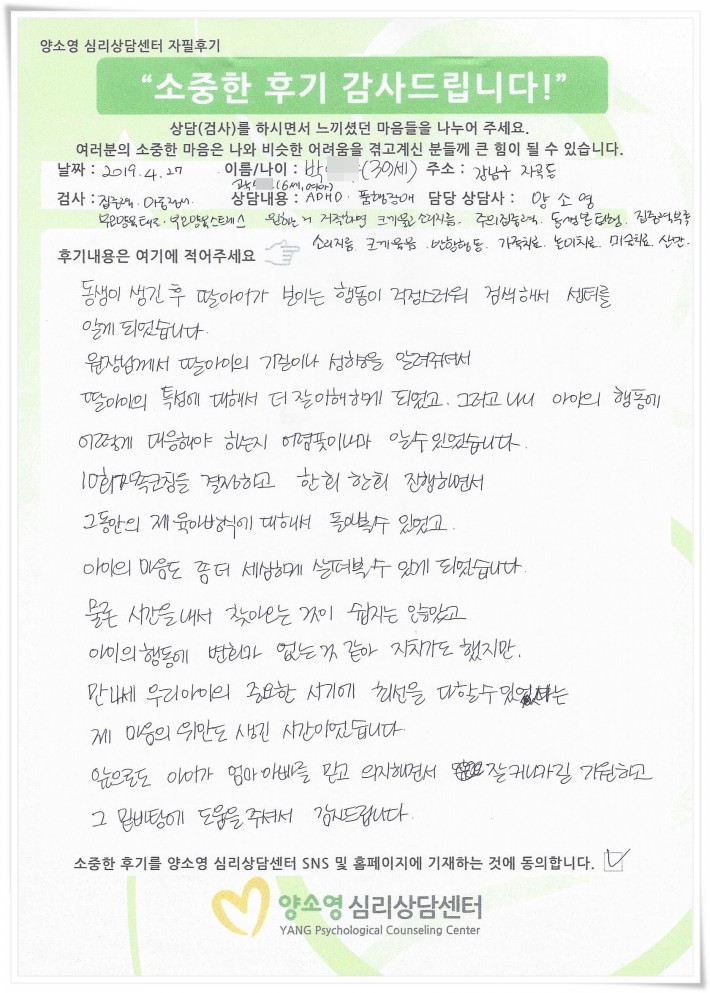 양소영 심리상담센터 자필후기
“소중한 후기 감사드립니다!”
상담(검사)를 하시면서 느끼셨던 마음들을 나누어 주세요.
여러분의 소중한 마음은 나와 비슷한 어려움을 겪고계신 분들께 큰 힘이 될 수 있습니다.
날짜 : 2019. 4. 27 이름/나이 : 박 (30세) 주소 : 강남구 자곡동
(6세, 여아)
검사 : 집중력, 아동 상담내용 : ADHD · 틱장애 담당 상담사 : 양 소 영
부모양육태도 · 부모양육스트레스 원하는 거 저지하면 크게울고소리지름. 주의집중력, 동생본 집중력부족
소리지름, 크게욺 가족치료, 놀이치료, 미술치료, 산만.
후기내용은 여기에 적어주세요
동생이 생긴 후 딸아이가 보이는 행동이 걱정스러워 검색해서 센터를
알게 되었습니다.
원장님께서 딸아이의 기질이나 성향을 알려주셔서
딸아이의 특성에 대해서 더 잘 이해하게 되었고, 그러고 나니 아이의 행동에
어떻게 대응해야 하는지 어렴풋이나마 알 수 있었습니다.
10회 가족코칭을 결정하고 한 회 한 회 진행하면서
그동안의 제 육아방식에 대해서 돌아볼 수 있었고
아이의 마음도 좀 더 세심하게 살펴볼 수 있게 되었습니다.
물론 시간을 내서 찾아오는 것이 쉽지는 않았고
아이의 행동에 변화가 없는 것 같아 지치기도 했지만,
만 4세 우리아이의 중요한 시기에 최선을 다할 수 있었다는
제 마음의 위안도 생긴 시간이었습니다
앞으로도 아이가 엄마 아빠를 믿고 의지하면서 잘 커나가길 기원하고
그 밑바탕에 도움을 주셔서 감사드립니다.
소중한 후기를 양소영 심리상담센터 SNS 및 홈페이지에 기재하는 것에 동의합니다.
양소영 심리상담센터
YANG Psychological Counseling Center